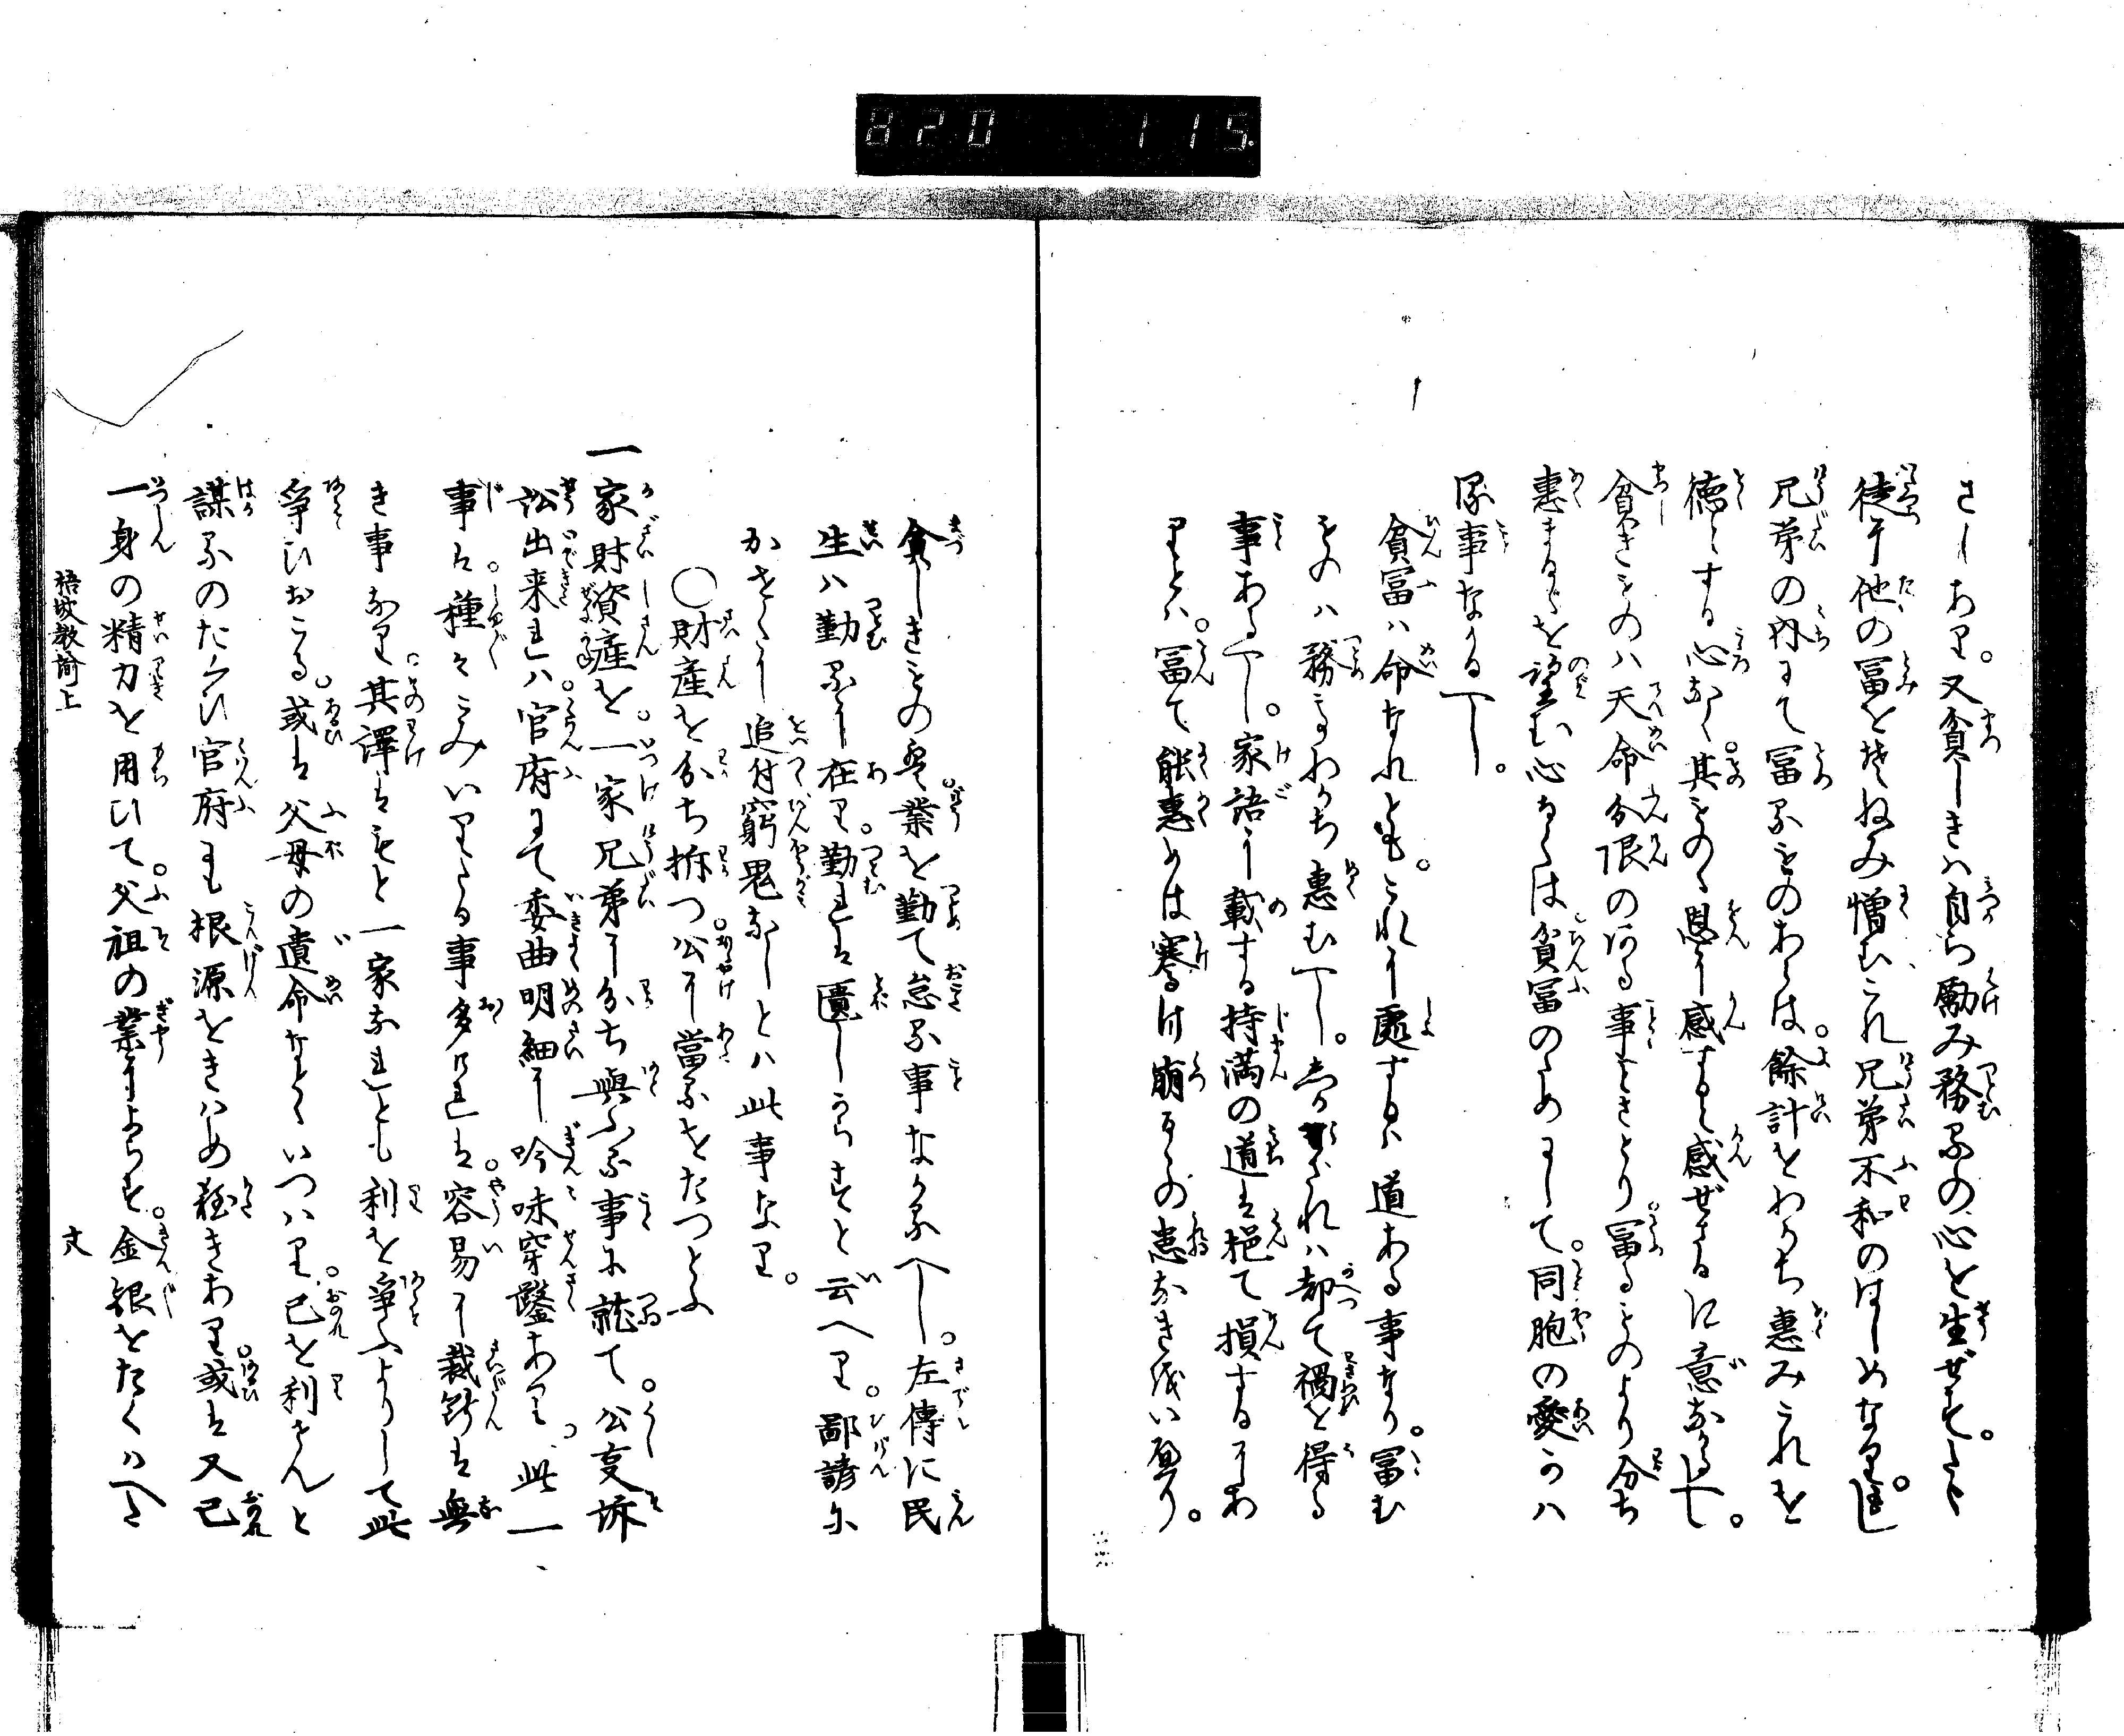 820 115
さしあり。又貧しきハ自ら勵み務るの心を生ぜず。たゝ
徒に他の冨をそねみ憎む、これ兄弟不和のはしめなり。但し
兄弟の内にて冨るものあらは。餘計をわかち惠みこれを
徳とする心なく。其ものゝ恩に感すると感ぜさるに意なかるへし。
貧きものハ天命分限の定る事をさとり。冨るものより分ち
惠まるゝを望む心なくは。貧冨のためにして。同胞の愛うハ
事なかるへし。
貧冨ハ命なれとも。これに處するハ道ある事なり。冨む
ものハ務てわかち惠むへし。しからされハ却て禍を得る
事あるへし。家語に載する持満の道は挹て損するにあ
りとハ。冨て能惠めは騫け崩るゝの患なき義い歟り。
貧しきもの其業を勤て怠る事なかるへし。左傳に民
生ハ勤るに在り。勤れは匱しからすと云へり。鄙諺に
かせくに追付窮鬼なしとハ此事なり。
○財産を分ち拆つ公に當るをたつとふ
一家財資産を。一家兄弟に分ち與ふる事に就て。公事訴
訟出来れハ。官府にて委曲明細に吟味穿鑿あり。此一
事は。種々こみいりたる事多けれは。容易に裁断は無
き事なり。其譯はもと一家なれとも利を爭ふよりして此
爭ひおこる。或は父母の遺命なとゝいつハり。己を利せんと
謀るのたくひ官府にも根源をきハめ難きあり。或は又己
一身の精力を用ひて。父祖の業によらす。金銀をたくハへた
梧坡教諭上
丈